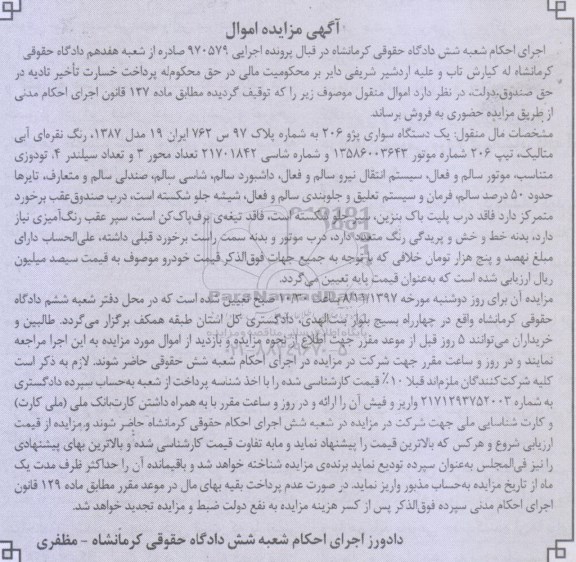 آگهی مزایده اموال
اجرای احکام شعبه شش دادگاه حقوقی کرمانشاه در قبال پرونده اجرایی ۹۷۰۵۷۹ صادره از شعبه هفدهم دادگاه حقوقی
کرمانشاه له کیارش تاب و علیه اردشیر شریفی دایر بر محکومیت مالی در حق محکوم‌له پرداخت خسارت تأخیر تادیه در
حق صندوق دولت، در نظر دارد اموال منقول موصوف زیر را که توقیف گردیده مطابق ماده ۱۳۷ قانون اجرای احکام مدنی
از طریق مزایده حضوری به فروش برساند.
مشخصات مال منقول: یک دستگاه سواری پژو ۲۰۶ به شماره پلاک ۹۷ س ۷۶۲ ایران ۱۹ مدل ۱۳۸۷، رنگ نقره‌ای آبی
متالیک، تیپ ۲۰۶ شماره موتور ۱۳۵۸۶۰۰۳۶۴۳ و شماره شاسی ۲۱۷۰۱۸۴۲ تعداد محور ۳ و تعداد سیلندر ۴، تودوزی
متناسب، موتور سالم و فعال، سیستم انتقال نیرو سالم و فعال، داشبورد سالم، شاسی سالم، صندلی سالم و متعارف، تایرها
حدود ۵۰ درصد سالم، فرمان و سیستم تعلیق و جلوبندی سالم و فعال، شیشه جلو شکسته است، درب صندوق‌عقب برخورد
متمرکز دارد فاقد درب پلیت باک بنزین، سپر جلو شکسته است، فاقد تیغه‌ی برف‌پاک‌کن است، سپر عقب رنگ‌آمیزی نیاز
دارد، بدنه خط و خش و پریدگی رنگ متعدد دارد، درب موتور و بدنه سمت راست برخورد قبلی داشته، علی‌الحساب دارای
مبلغ نهصد و پنج هزار تومان خلافی که با توجه به جمیع جهات فوق‌الذکر قیمت خودرو موصوف به قیمت سیصد میلیون
ریال ارزیابی شده است که به‌عنوان قیمت پایه تعیین می‌گردد.
مزایده آن برای روز دوشنبه مورخه ۸/۱۱/۱۳۹۷ ساعت ۱۰/۳۰ صبح تعیین شده است که در محل دفتر شعبه ششم دادگاه
حقوقی کرمانشاه واقع در چهارراه بسیج بلوار بنت‌الهدی، دادگستری کل استان طبقه همکف برگزار می‌گردد. طالبین و
خریداران می‌توانند ۵ روز قبل از موعد مقرر جهت اطلاع از نحوه مزایده و بازدید از اموال مورد مزایده به این اجرا مراجعه
نمایند و در روز و ساعت مقرر جهت شرکت در مزایده در اجرای احکام شعبه شش حقوقی حاضر شوند. لازم به ذکر است
کلیه شرکت‌کنندگان ملزم‌اند قبلا ۱۰٪ قیمت کارشناسی شده را با اخذ شناسه پرداخت از شعبه به‌حساب سپرده دادگستری
به شماره ۲۱۷۱۲۹۳۷۵۲۰۰۳ واریز و فیش آن را ارائه و در روز و ساعت مقرر با به همراه داشتن کارت‌بانک ملی (ملی کارت)
و کارت شناسایی ملی جهت شرکت در مزایده در شعبه شش اجرای احکام حقوقی کرمانشاه حاضر شوند و مزایده از قیمت
ارزیابی شروع و هرکس که بالاترین قیمت را پیشنهاد نماید و مابه تفاوت قیمت کارشناسی شده و بالاترین بهای پیشنهادی
را نیز فی‌المجلس به‌عنوان سپرده تودیع نماید برنده‌ی مزایده شناخته خواهد شد و باقیمانده آن را حداکثر ظرف مدت یک
ماه از تاریخ مزایده به‌حساب مذبور واریز نماید. در صورت عدم پرداخت بقیه بهای مال در موعد مقرر مطابق ماده ۱۲۹ قانون
اجرای احکام مدنی سپرده فوق‌الذکر پس از کسر هزینه مزایده به نفع دولت ضبط و مزایده تجدید خواهد شد.
دادورز اجرای احکام شعبه شش دادگاه حقوقی کرمانشاه - مظفری